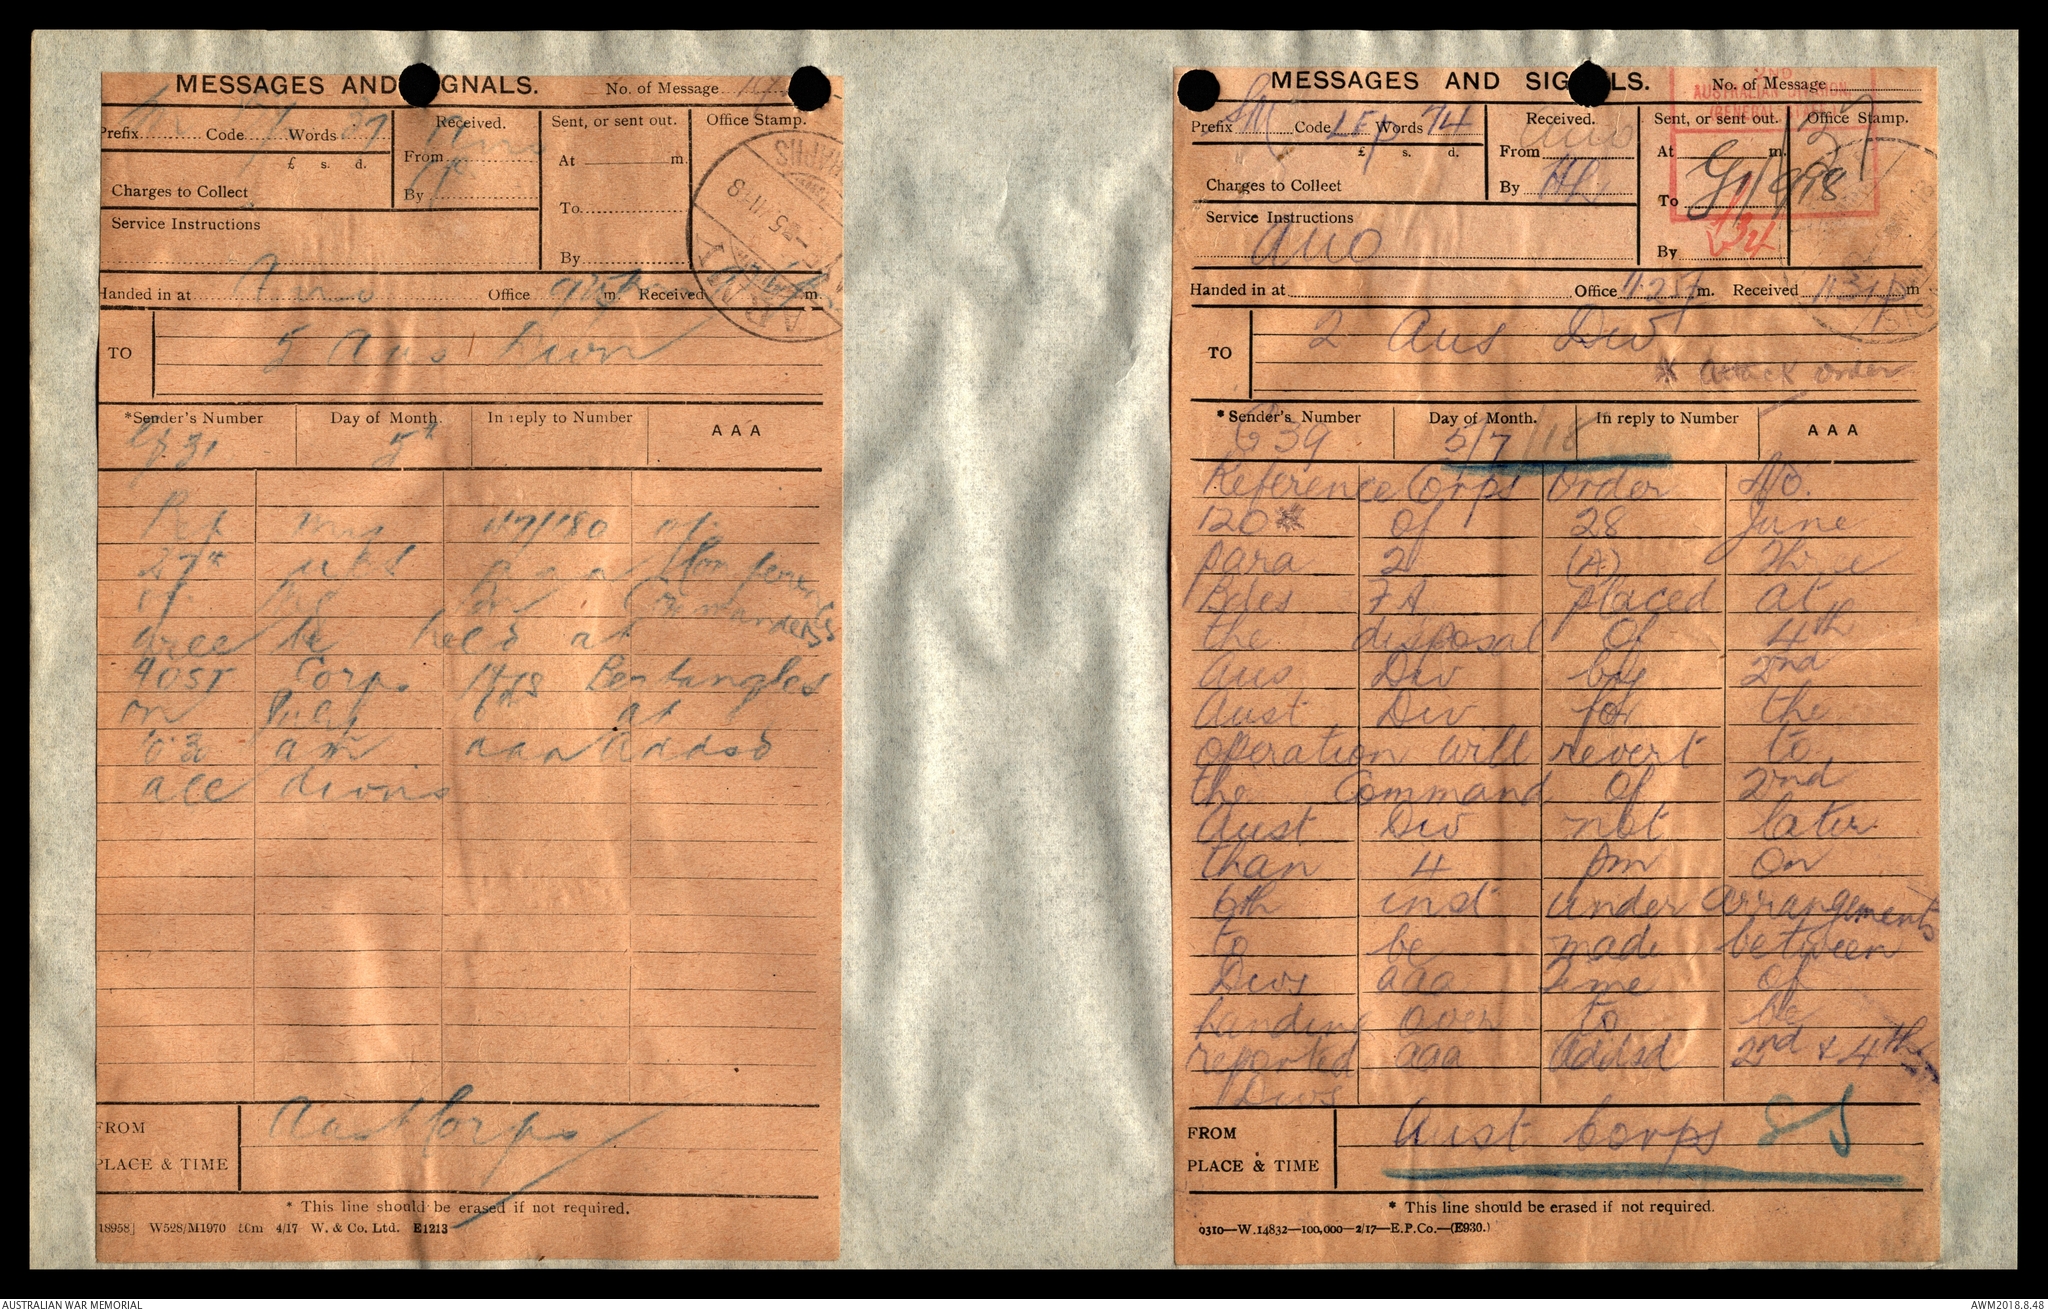 MESSAGES AND SIGNALS. No. of Message
Prefix Code Words 37 Received. Sent, or sent out. Office Stamp.
£ s. d. From At m.
Charges to Collect By To
Service Instructions By
Handed in at Office m. Received m.
TO 5 Aus Divn
*Sender's Number Day of Month. In reply to Number AAA
5th
Ref my of
27th aaa Conference
of Commanders
will be held at
Corps Hqrs Bertangles
on July 6th at
am aaa addsd
all divns
FROM Aust Corps
PLACE & TIME
* This line should be erased if not required.
18958] W528/M1970 4/17 W. & Co. Ltd. E1213
MESSAGES AND SIGNALS. No. of Message
2ND AUSTRALIAN DIVISION
Prefix SM Code LEP Words 74 Received. Sent, or sent out. Office Stamp.
£ s. d. From Auo At m.
Charges to Collect By HL To
Service Instructions Auo By
Handed in at Office 11.25 m. Received m
TO 2 Aus Div
* Attack order
*Sender's Number Day of Month. In reply to Number AAA
G 39 5/7/18
Reference Corps Order No.
120 * of 28 June
para 2 (A) Three
Bdes FA placed at
the disposal of 4th
Aus Div by 2nd
Aust Div for the
operation will revert to
the Command of 2nd
Aust Div not later
than 4 pm on
6th inst under arrangements
to be made between
Divs aaa Time of
handing over to be
reported aaa Addsd 2nd & 4th
Divs
FROM Aust Corps
PLACE & TIME
* This line should be erased if not required.
0310—W.14832—100,000—2/17—E.P.Co.—(E930.)
AUSTRALIAN WAR MEMORIAL AWM2018.8.48